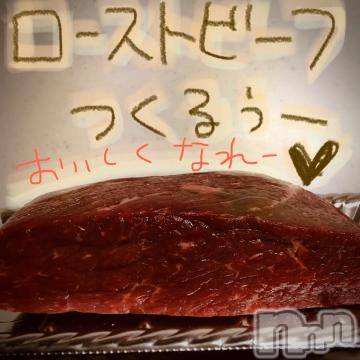 ローストビーフ
つくるぅー
おいしくなれー♥
nmn